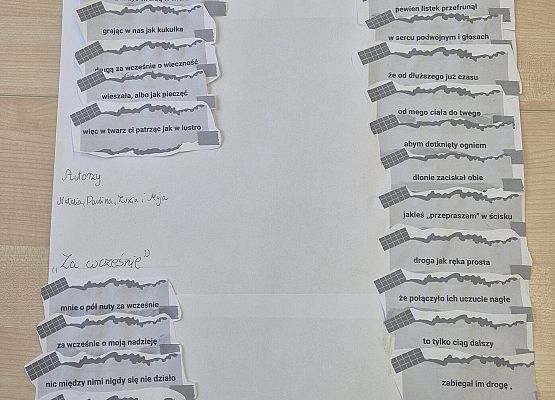 grając w nas jak kukułka
drugą za wcześnie o wieczność
wieszała, albo jak pieczęć
więc w twarz ci patrząc jak w lustro
Autorzy
Natalia, Paulina, Zuzia i Maja
„Za wcześnie”
mnie o pół nuty za wcześnie
za wcześnie o moją nadzieję
nic między nimi nigdy się nie działo
pewien listek przefrunął
w sercu podwójnym i głosach
że od dłuższego już czasu
od mego ciała do twego
abym dotknięty ogniem
dłonie zaciskał obie
jakieś „przepraszam” w ścisku
droga jak ręka prosta
że połączyło ich uczucie nagłe
to tylko ciąg dalszy
zabiegał im drogę